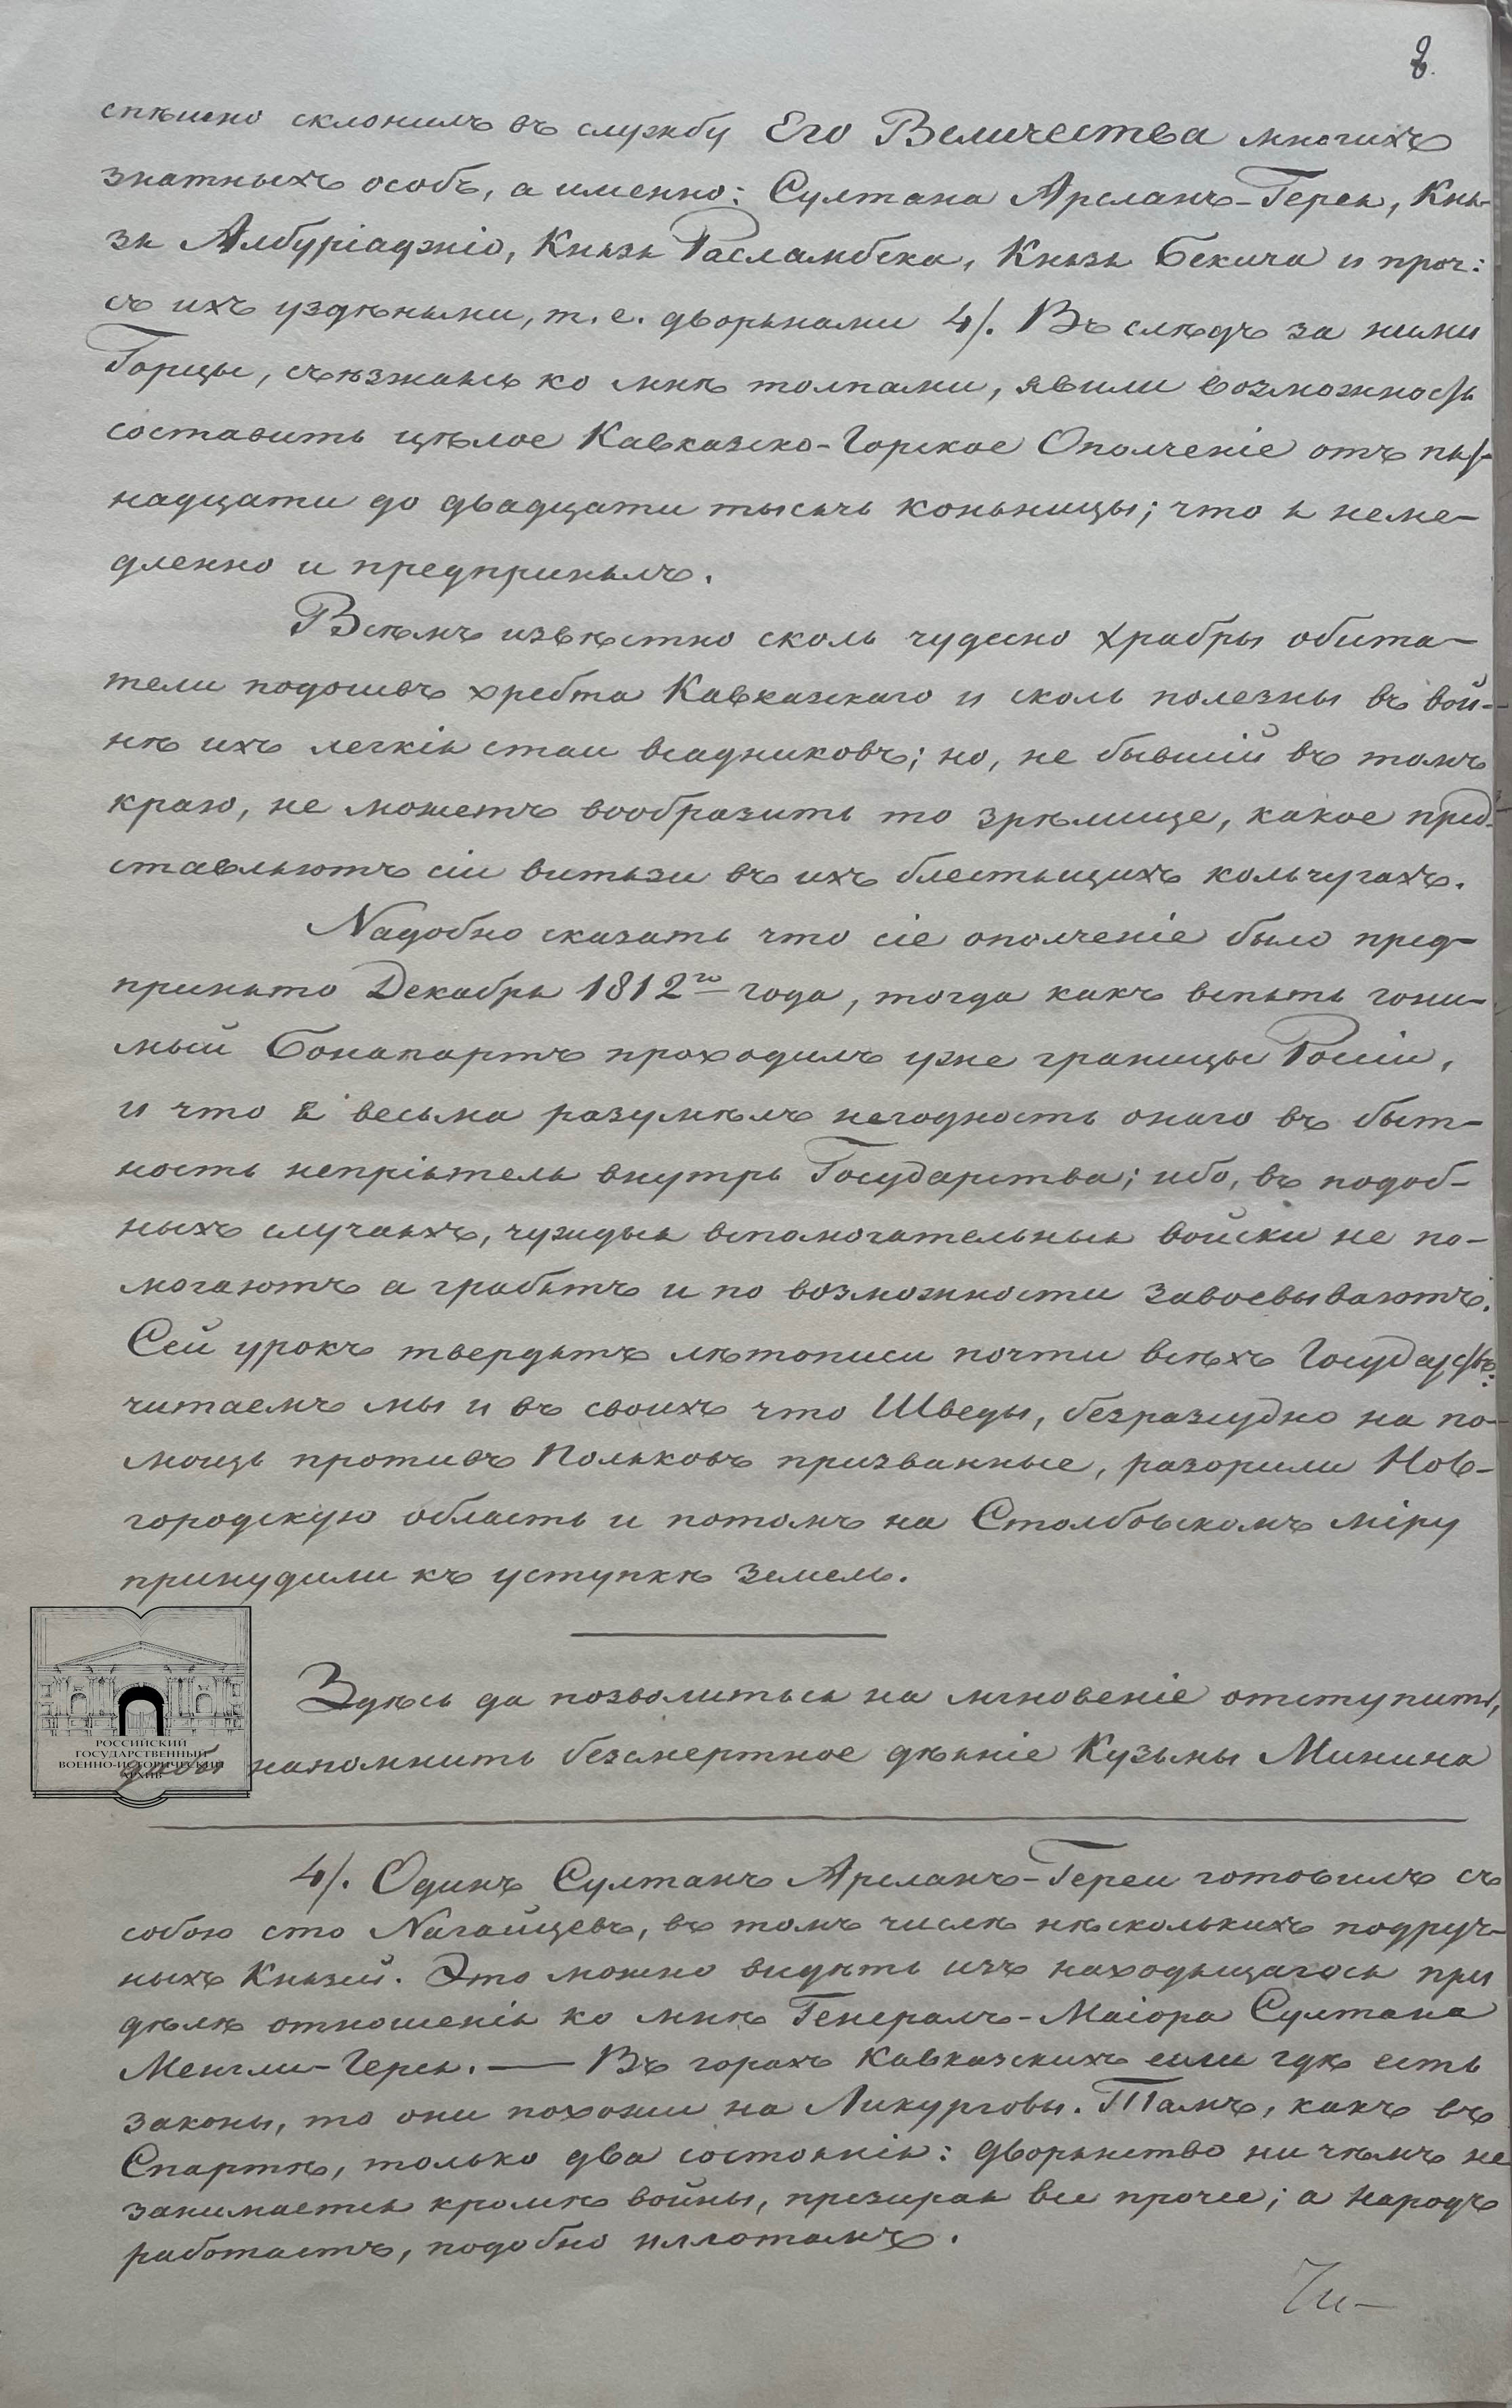 8.
спѣшно склонилъ въ службу Его Величества многихъ
знатныхъ особъ, а именно: Султана Арсланъ-Герея, Кня-
зя Албуріаджіо, Князя Расламбека, Князя Бекича и проч:
съ ихъ узденями, т. е. дворянами 4/. Въ слѣдъ за ними
Горцы, съѣзжаясь ко мнѣ толпами, явили возможность
составить цѣлое Кавказско-Горское Ополченіе отъ пят-
надцати до двадцати тысячь конницы; что я неме-
дленно и предпринялъ.
Всѣмъ извѣстно сколь чудесно храбры обита-
тели подошвъ хребта Кавказскаго и сколь полезны въ вой-
нѣ ихъ легкія стаи всадниковъ; но, не бывшій въ томъ
краю, не можетъ вообразить то зрѣлище, какое пред-
ставляютъ сіи витязи въ ихъ блестящихъ кольчугахъ.
Надобно сказать что сіе ополченіе было пред-
принято Декабря 1812го года, тогда какъ вспять гони-
мый Бонапартъ проходилъ уже границы Росіи,
и что я весьма разумѣлъ негодность онаго въ быт-
ность непріятеля внутрь Государства; ибо, въ подоб-
ныхъ случаяхъ, чуждыя вспомогательныя войски не по-
могаютъ а грабятъ и по возможности завоевываютъ.
Сей урокъ твердятъ лѣтописи почти всѣхъ Государствъ:
читаемъ мы и въ своихъ что Шведы, безразсудно на по-
мощь противъ Поляковъ призванные, разорили Нов-
городскую область и потомъ на Столбовскомъ міру
принудили къ уступкѣ земель.
Здѣсь да позволиться на мгновеніе отступить,
дабы напомнить безсмертное дѣяніе Кузьмы Минина
РОССИЙСКИЙ
ГОСУДАРСТВЕННЫЙ
ВОЕННО-ИСТОРИЧЕСКИЙ
АРХИВ
4/. Одинъ Султанъ Арсланъ-Гереи готовилъ съ
собою сто Нагайцевъ, въ томъ числѣ нѣсколькихъ подруч-
ныхъ Князей. Это можно видѣть изъ находящагося при
дѣлѣ отношенія ко мнѣ Генералъ-Маіора Султана
Менгли-Герея. — Въ горахъ Кавказскихъ если гдѣ есть
законы, то они похожи на Ликурговы. Тамъ, какъ въ
Спартѣ, только два состоянія: дворянство ни чѣмъ не
занимается кромѣ войны, презирая все прочее; а народъ
работаетъ, подобно иллотамъ.